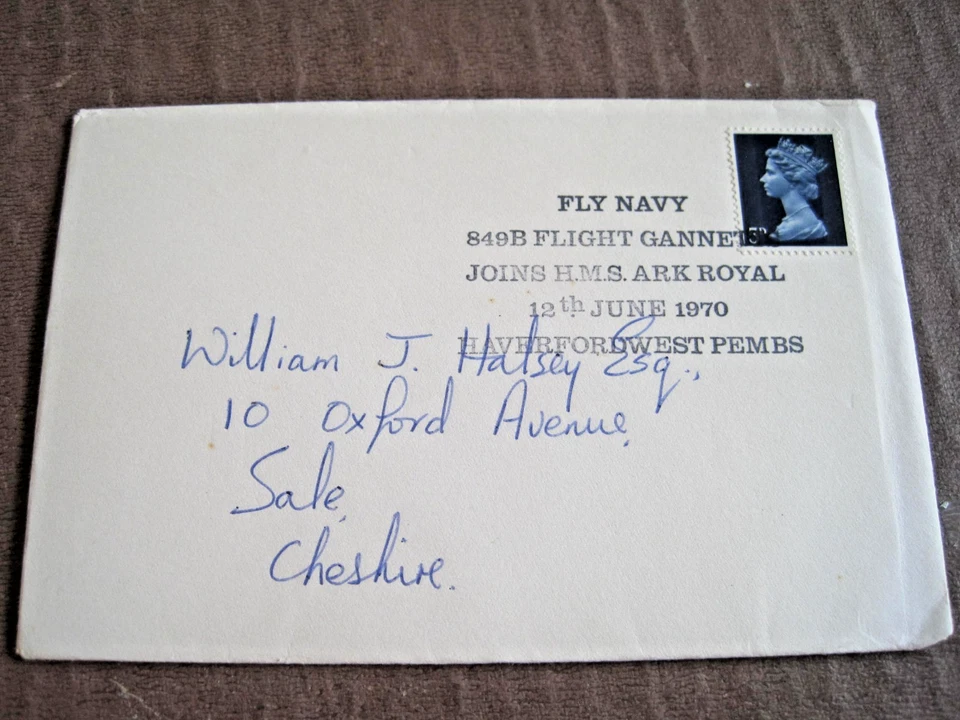 FLY NAVY
849B FLIGHT GANNETS
JOINS H.M.S. ARK ROYAL
12th JUNE 1970
HAVERFORDWEST PEMBS
5D
William J. Halsey Esq.,
10 Oxford Avenue,
Sale,
Cheshire.